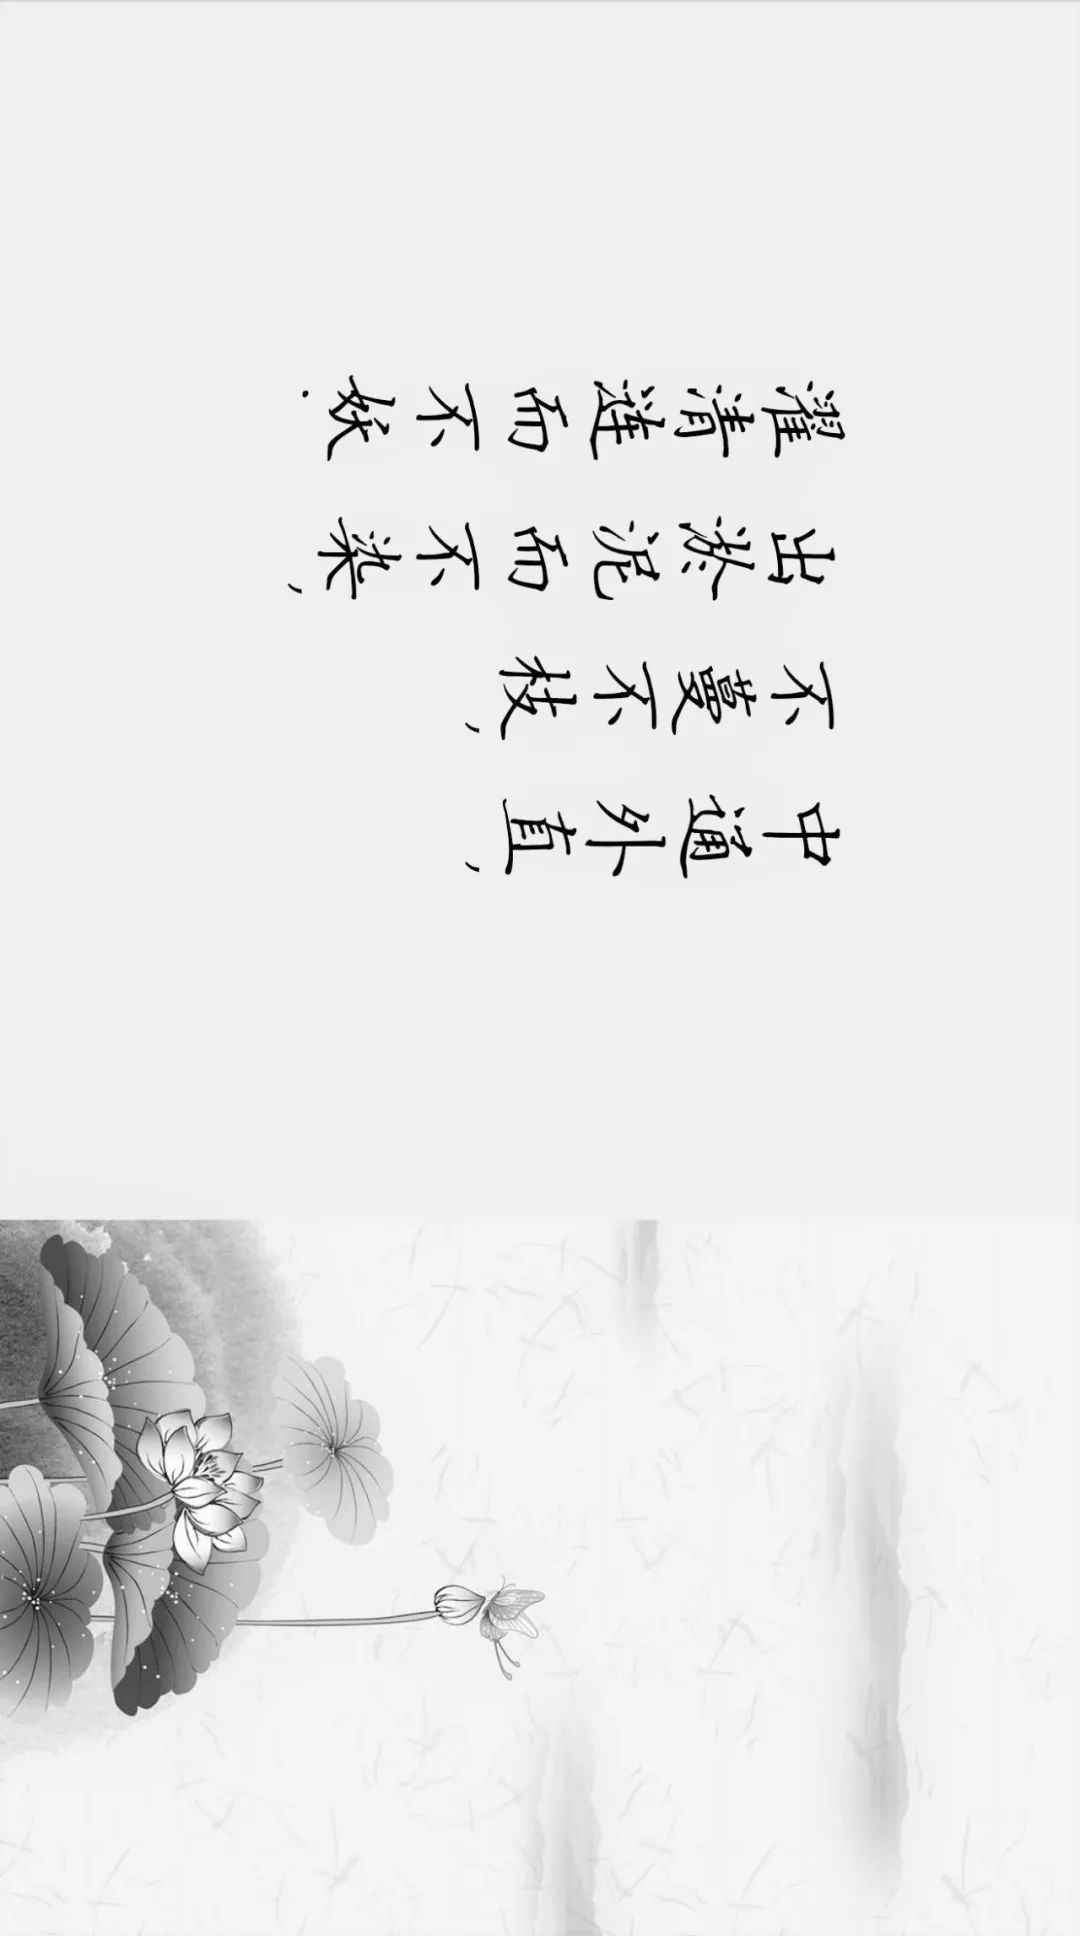 中通外直，
不蔓不枝，
出淤泥而不染，
濯清漣而不妖.